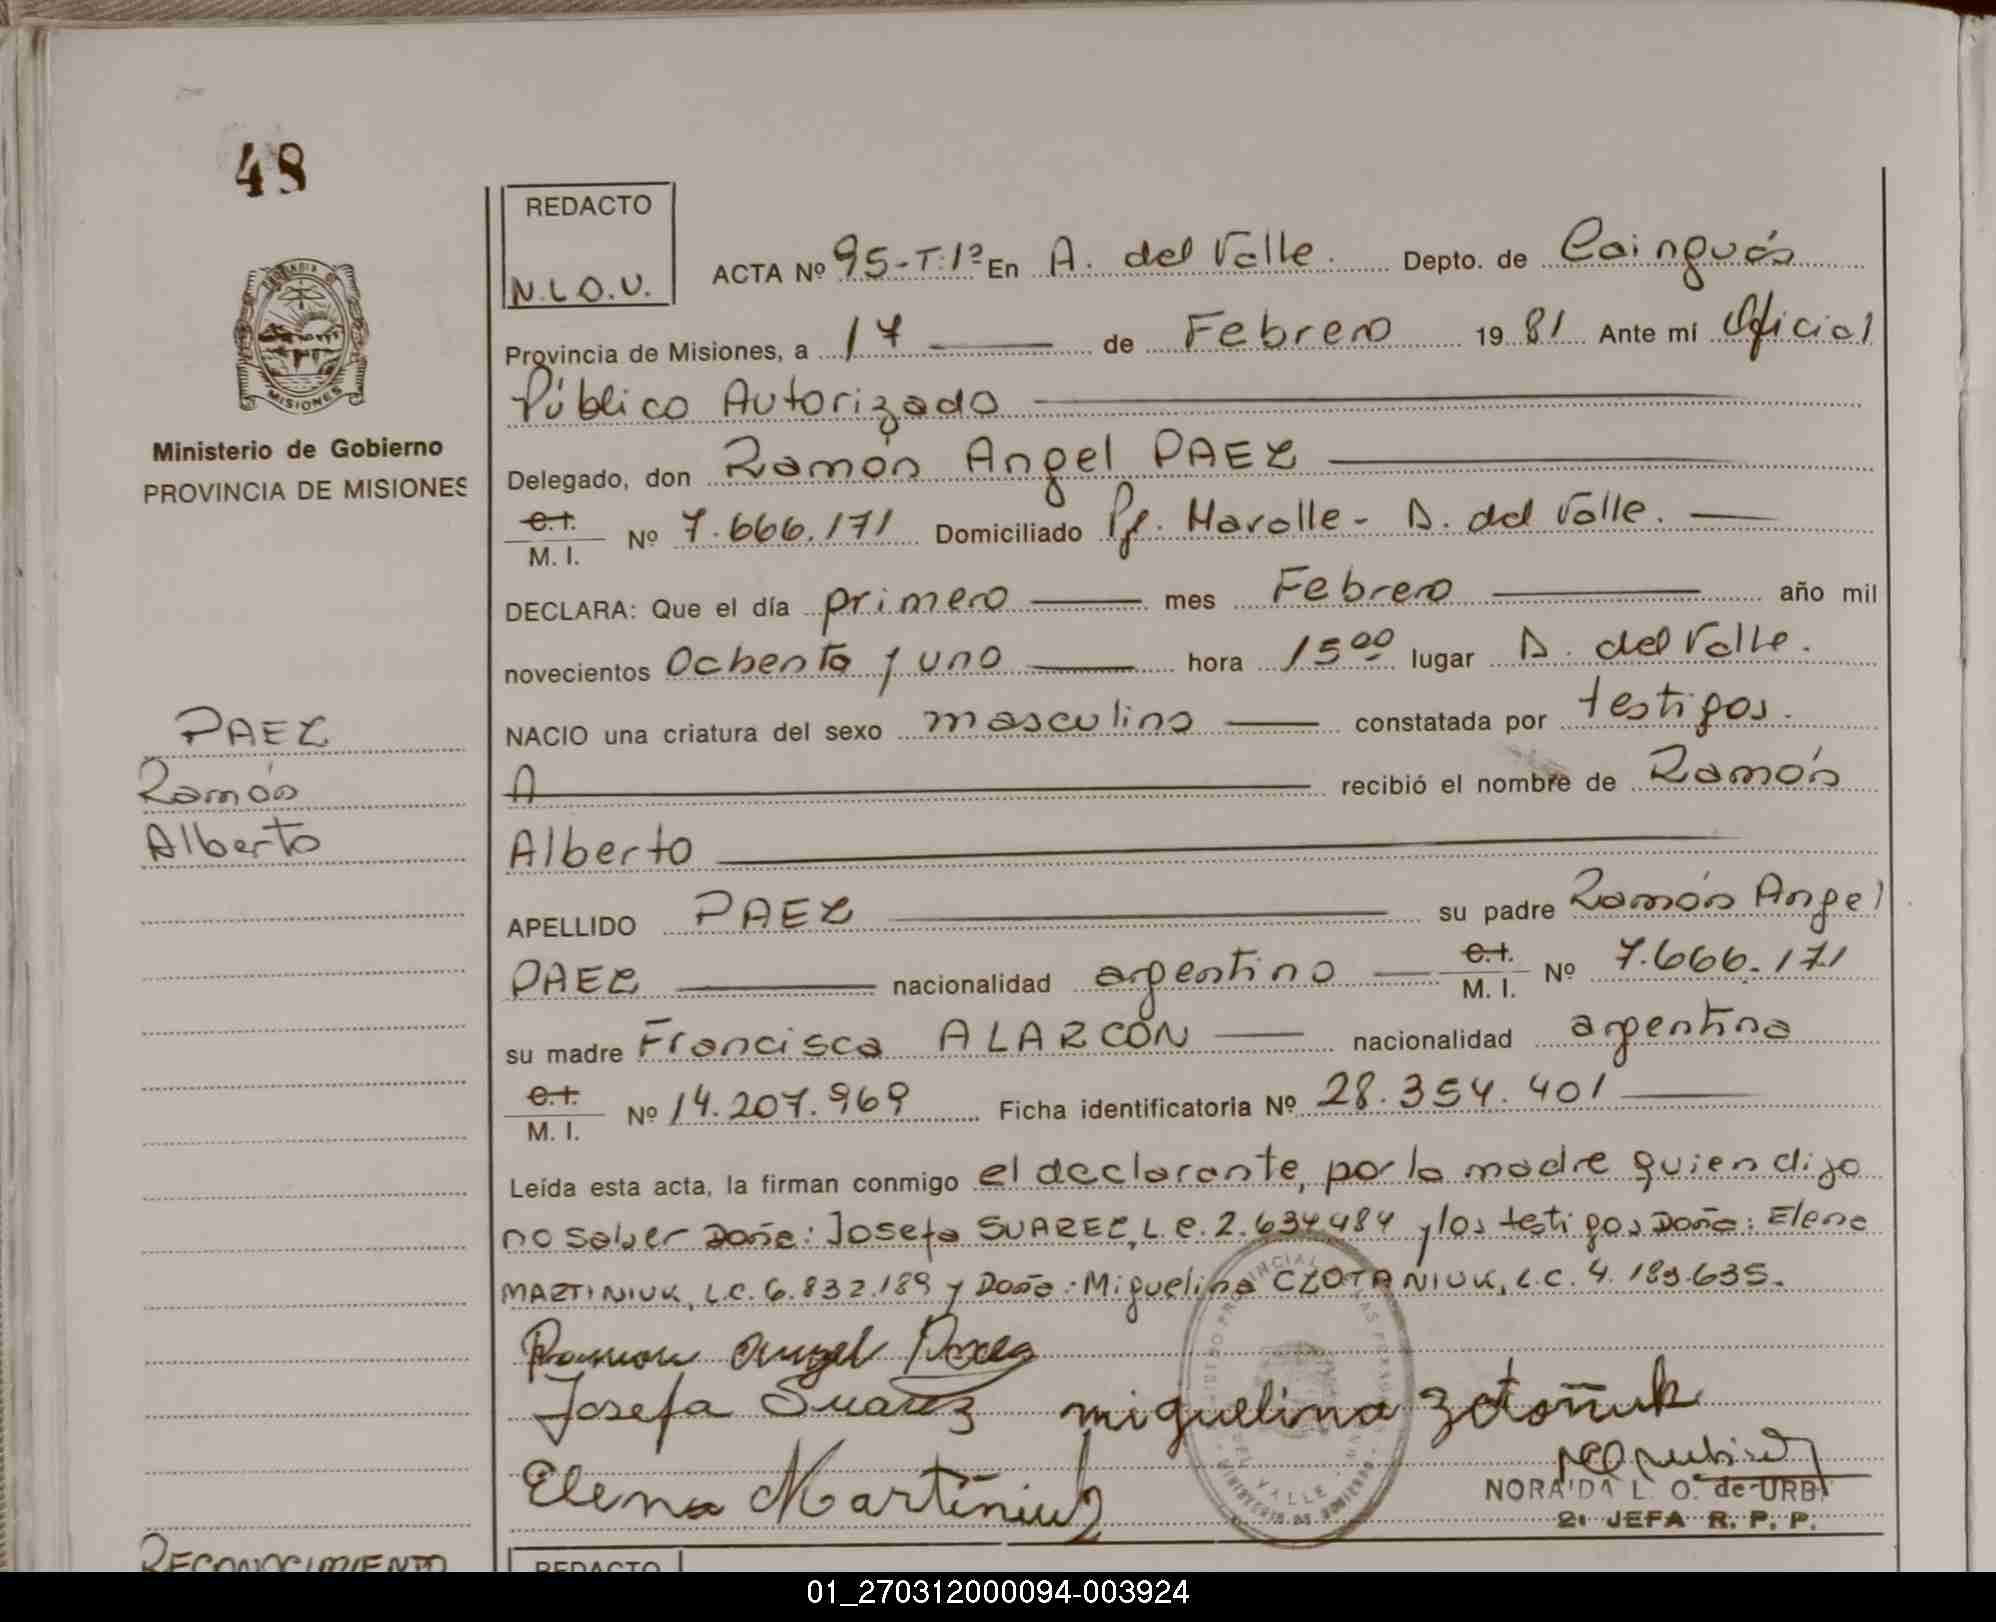 48
REDACTO
N.L.O.U.
ACTA Nº 95-T:1º En A. del Valle. Depto. de Cainguás
Provincia de Misiones, a 17 de Febrero 1981 Ante mí Oficial
Público Autorizado
Delegado, don Ramón Angel PAEZ
C.I. M. I. Nº 7.666.171 Domiciliado Pje. Marolle - A. del Valle.
DECLARA: Que el día primero mes Febrero año mil
novecientos Ochenta y uno hora 15 00 lugar A. del Valle.
NACIO una criatura del sexo masculino constatada por testigos.
A recibió el nombre de Ramón
Alberto
APELLIDO PAEZ su padre Ramón Angel
PAEZ nacionalidad argentino C.I. M. I. Nº 7.666.171
su madre Francisca ALARCÓN nacionalidad argentina
C.I. M. I. Nº 14.207.969 Ficha identificatoria Nº 28.354.401
Leída esta acta, la firman conmigo el declarante, por la madre quien dijo
no saber Doña: Josefa SUAREZ, L.C. 2.634.484 y los testigos Doña: Elena
MARTINIUK, L.C. 6.832.189 y Doña: Miguelina CZOTANIUK, L.C. 4.189.635.
Ramon Angel Paez
Josefa Suarez miguelina zotoñuk
Elena Martiniuk
NORAIDA L. O. de URBI
2ª JEFA R. P. P.
MISIONES
Ministerio de Gobierno
PROVINCIA DE MISIONES
PAEZ
Ramón
Alberto
RECONOCIMIENTO
REDACTO
01_270312000094-003924